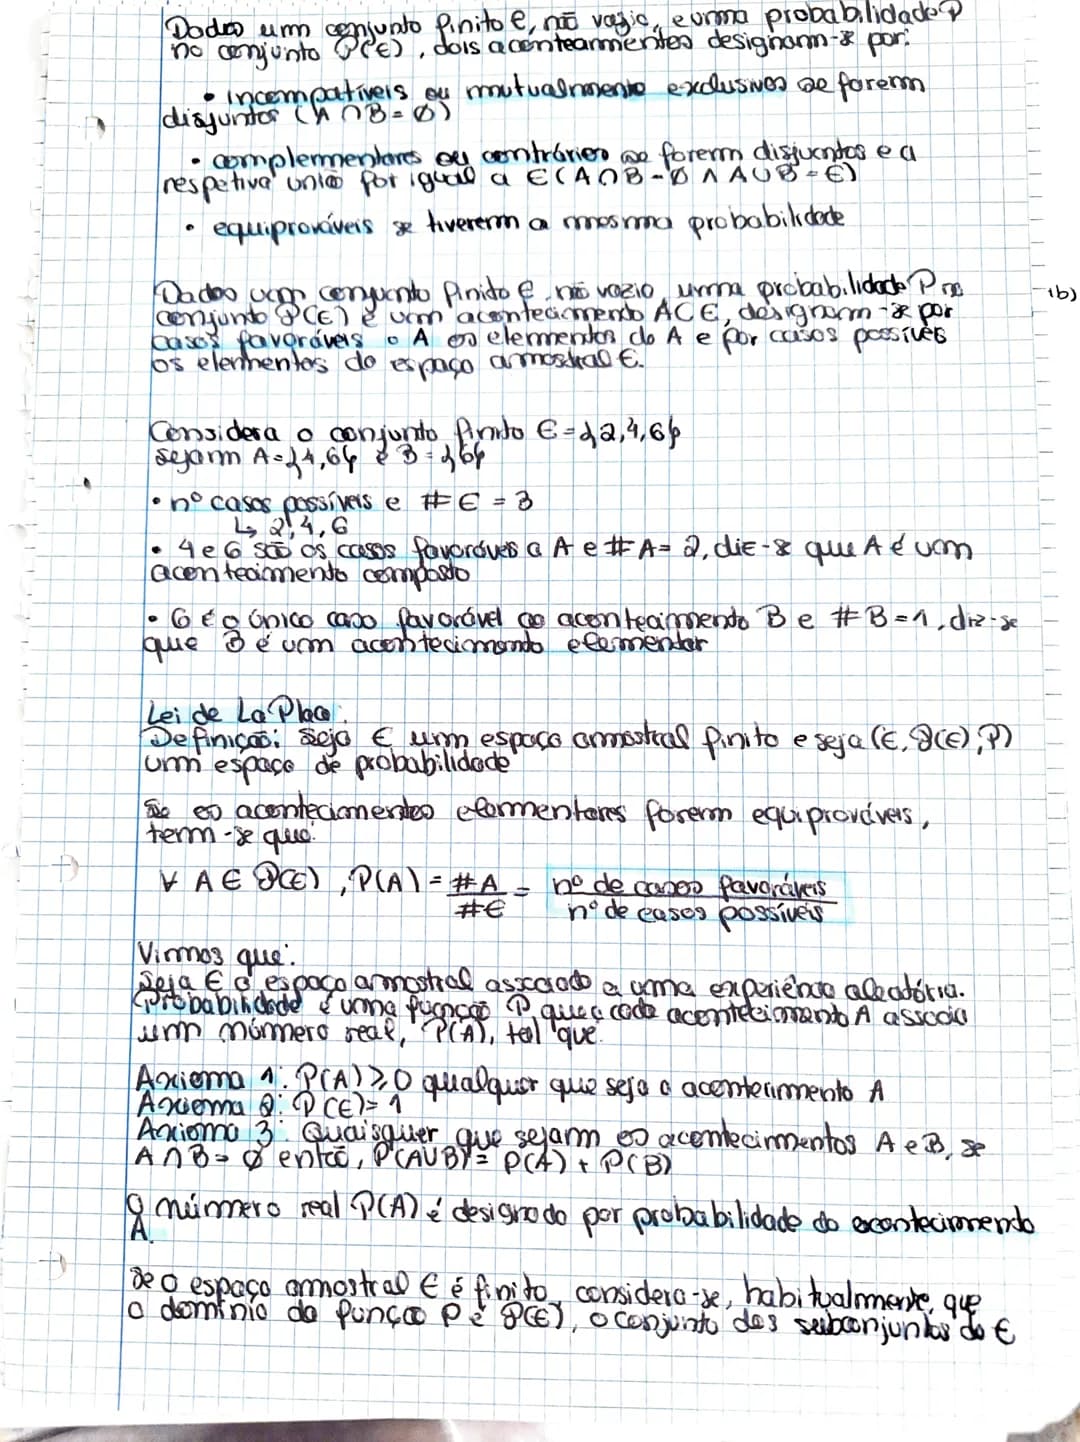 Dados um conjunto finito E, não vazio, e uma probabilidade P
no conjunto P(E), dois acontecimentos designam-se por:
• incompatíveis ou mutualmente exclusivos se forem
disjuntos (A∩B=∅)
• complementares ou contrários se forem disjuntos e a
respetiva união for igual a E (A∩B=∅ ∧ A∪B=E)
• equiprováveis se tiverem a mesma probabilidade
Dados um conjunto finito E, não vazio, uma probabilidade P no
conjunto P(E) e um acontecimento A⊂E, designam-se por
casos favoráveis a A os elementos do A e por casos possíveis
os elementos do espaço amostral E.
1b)
Considera o conjunto finito E={2,4,6}
sejam A={4,6} e B={6}
• nº casos possíveis e #E = 3
↳ 2,4,6
• 4 e 6 são os casos favoráveis a A e #A=2, diz-se que A é um
acontecimento composto
• 6 é o único caso favorável ao acontecimento B e #B=1, diz-se
que B é um acontecimento elementar
Lei de La Place:
Definição: Seja E um espaço amostral finito e seja (E, P(E), P)
um espaço de probabilidade
Se os acontecimentos elementares forem equiprováveis,
tem-se que:
∀ A∈P(E), P(A) = #A/#E = nº de casos favoráveis/nº de casos possíveis
Vimos que:
Seja E o espaço amostral associado a uma experiência aleatória.
Probabilidade é uma função P, que a cada acontecimento A associa
um número real, P(A), tal que:
Axioma 1: P(A)≥0 qualquer que seja o acontecimento A
Axioma 2: P(E)=1
Axioma 3: Quaisquer que sejam os acontecimentos A e B, se
A∩B=∅ então, P(A∪B)= P(A) + P(B)
O número real P(A) é designado por probabilidade do acontecimento
A.
Se o espaço amostral E é finito, considera-se, habitualmente, que
o domínio da função P é P(E), o conjunto dos subconjuntos do E